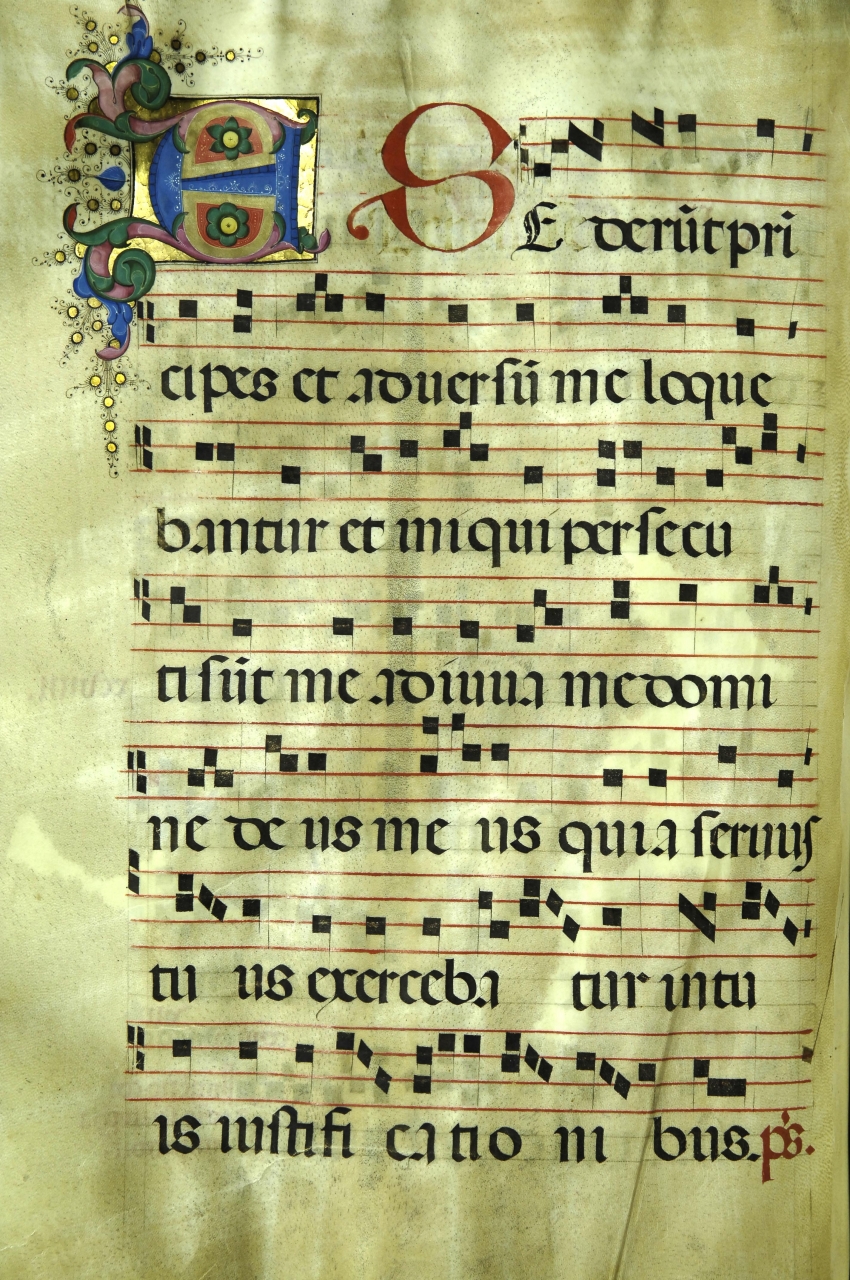 E SE derūt pri
cipes et aduersū me loque
bantur et iniqui persecu
ti sūt me adiuua me domi
ne de us me us quia seruus
tu us exerceba tur in tu
is iustifi ca tio ni bus. ps.